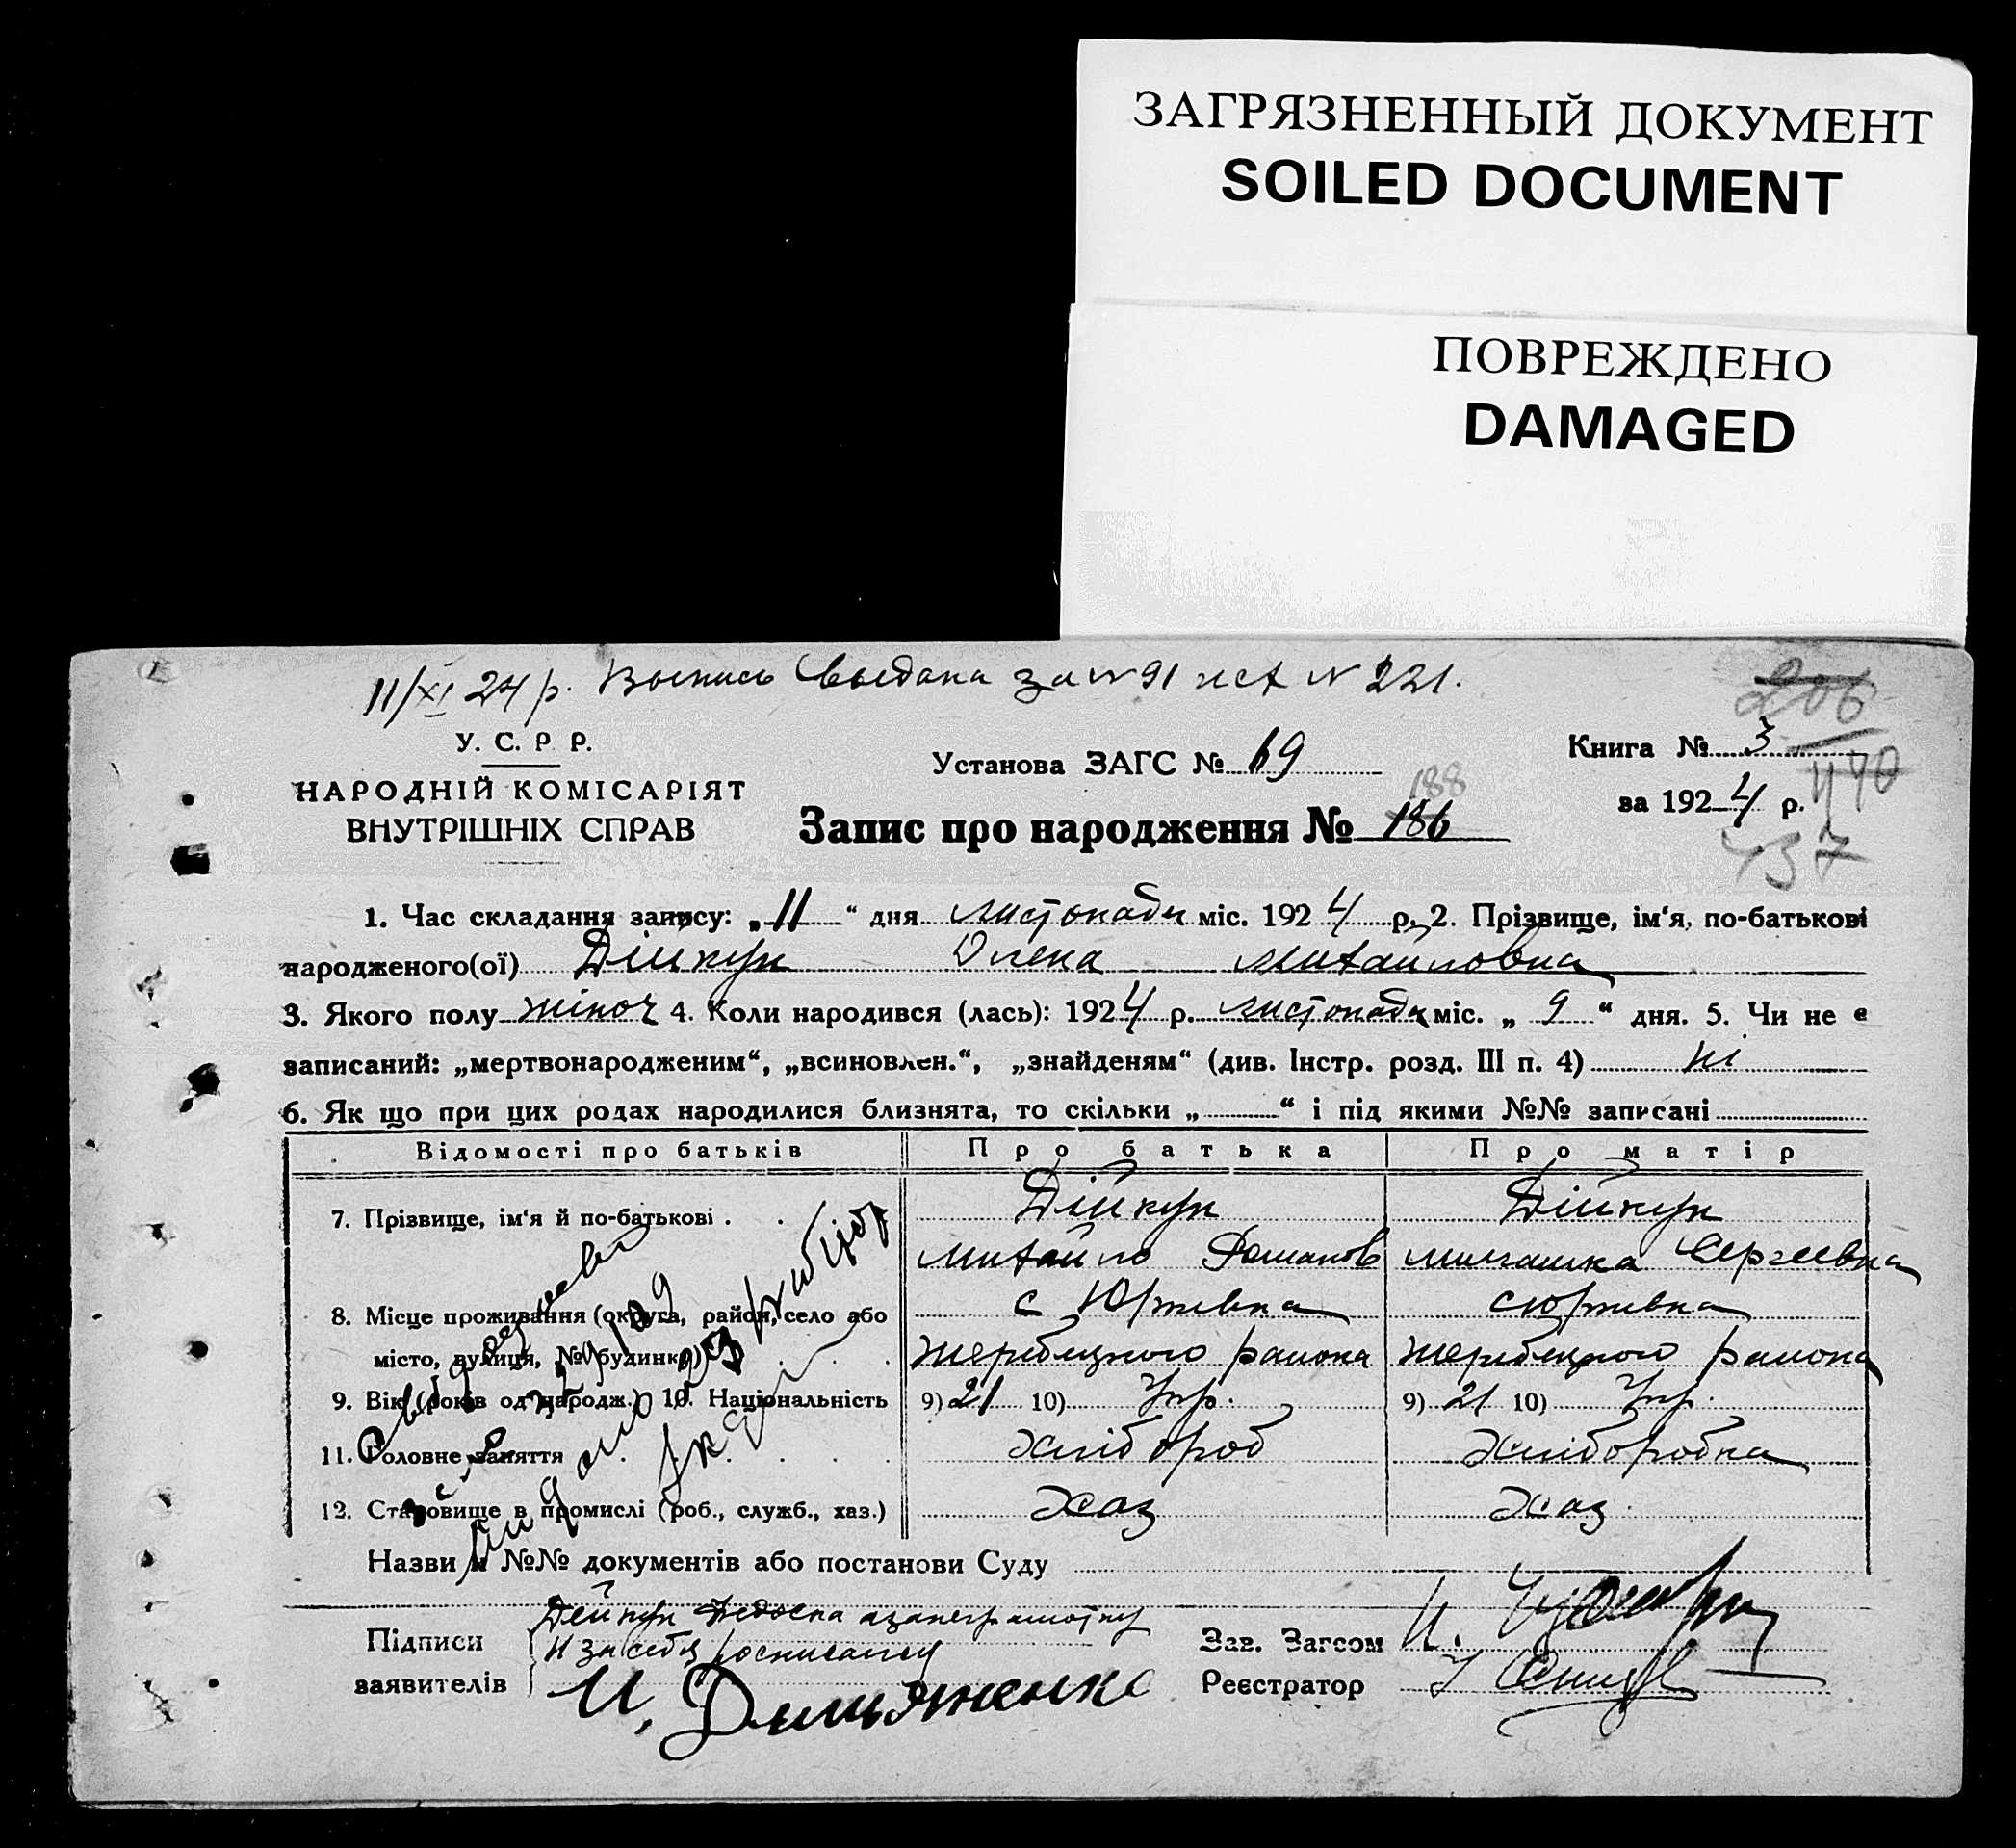 ЗАГРЯЗНЕННЫЙ ДОКУМЕНТ
SOILED DOCUMENT
ПОВРЕЖДЕНО
DAMAGED
11/XI 24 р. Выпись выдана за № 91 лист № 221.
206
У. С. Р. Р.
НАРОДНІЙ КОМІСАРІЯТ
ВНУТРІШНІХ СПРАВ
Установа ЗАГС № 69
Книга № 3
470
за 1924 р.
437
188
Запис про народження № 186
1. Час складання запису: „11“ дня листопада міс. 1924 р. 2. Прізвище, ім‘я, по-батькові
народженого(ої) Дійкун Олена Михайловна
3. Якого полу жіноч 4. Коли народився (лась): 1924 р. листопада міс. „9“ дня. 5. Чи не є
записаний: „мертвонародженим“, „всиновлен.“, „знайденям“ (див. Інстр. розд. III п. 4) ні
6. Як що при цих родах народилися близнята, то скільки „ “ і під якими №№ записані
Відомості про батьків Про батька Про матір
7. Прізвище, ім‘я й по-батькові . . Дійкун Дійкун
Михайло Романов Сергеевна
8. Місце проживання (округа, район, село або с Юрживка с Юрживка
місто, вулиця, № будинка) . . . Жеребецкого району Жеребецкого району
9. Вік (років од народж.) 10. Національність 9) 21 10) Укр. 9) 21 10) Укр.
11. Головне заняття . . . . Хлібороб Хлібородка
12. Становище в промислі (роб., служб., хаз.) Хаз Хаз.
Назви й №№ документів або постанови Суду
Дейкун Федоска а за неграмотну
Підписи и за себя росписался
заявителів И. Демьяненко
Зав. Загсом И.
Реєстратор